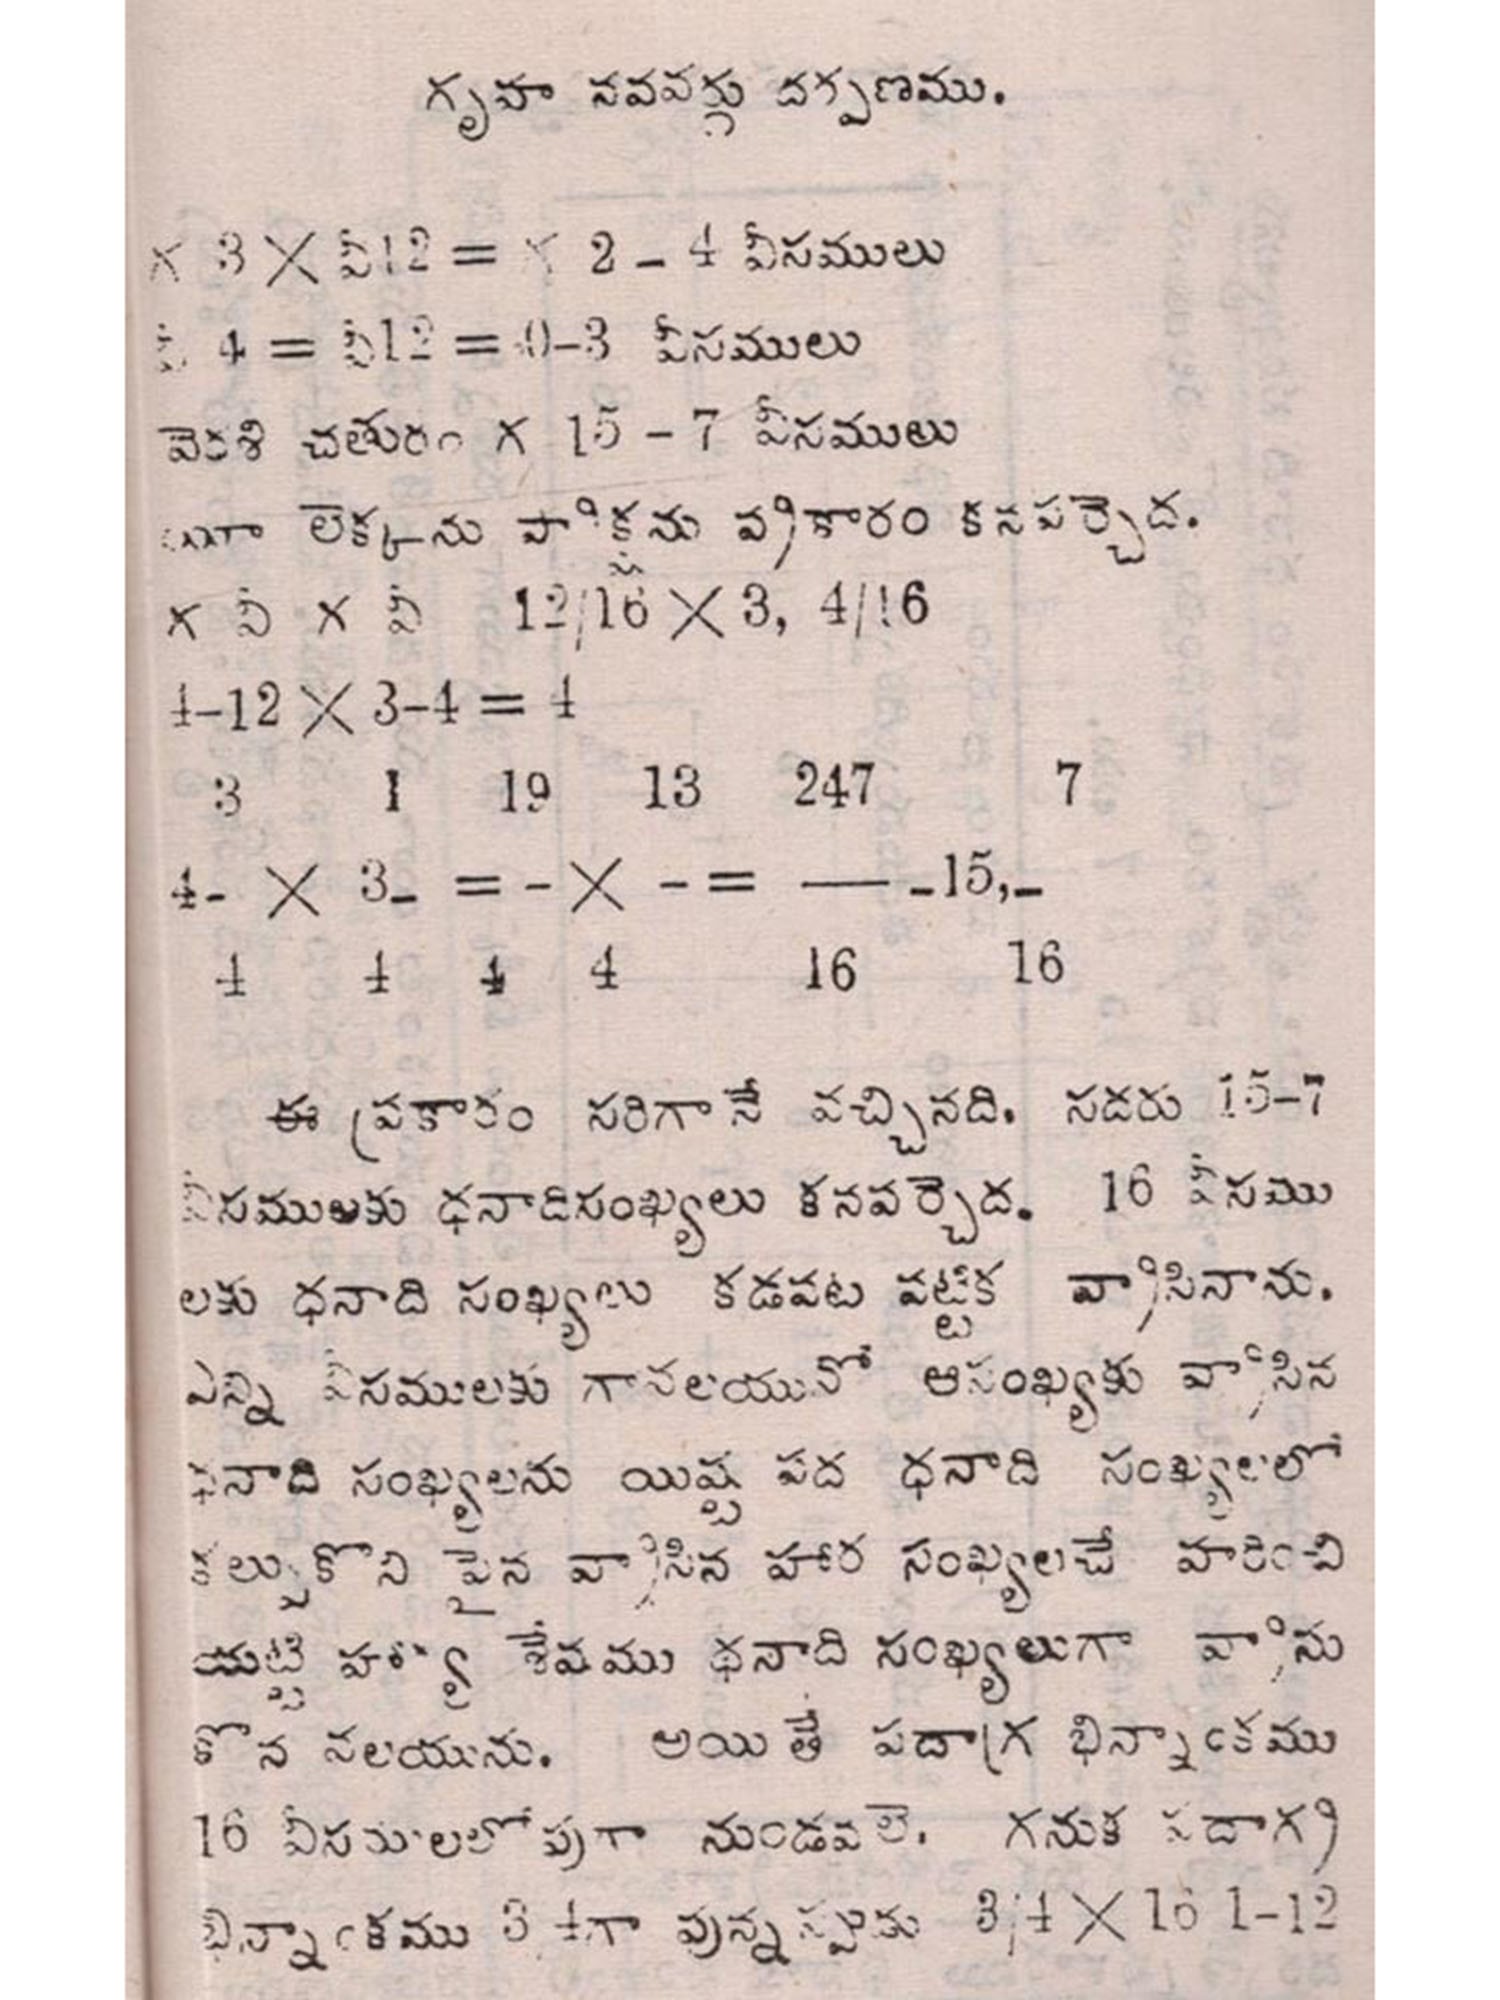 గృహ నవవర్గు దర్పణము.
గ 3 × వీ12 = గ 2 – 4 వీసములు
వీ 4 = వీ12 = 0–3 వీసములు
వెరశి చతురం గ 15 – 7 వీసములు
యిగా లెక్కను పాక్షిను ప్రకారం కనపర్చెద.
గ వీ గ వీ 12/16 × 3, 4/16
4–12 × 3–4 = 4
3 1 19 13 247 7
4- × 3- = - × - = —— -15,-
4 4 4 4 16 16
ఈ ప్రకారం సరిగానే వచ్చినది. సదరు 15–7
వీసములకు ధనాదిసంఖ్యలు కనపర్చెద. 16 వీసము
లకు ధనాది సంఖ్యలు కడపట పట్టిక వ్రాసినాను.
ఎన్ని వీసములకు గావలయునో ఆసంఖ్యకు వ్రాసిన
ధనాది సంఖ్యలను యిష్ట పద ధనాది సంఖ్యలలో
కల్పుకొని పైన వ్రాసిన హార సంఖ్యలచే హరించి
నట్టి శేషము ధనాది సంఖ్యలుగా వ్రాసు
కొన వలయును. అయితే పదాగ్ర భిన్నాంకము
16 వీసములలోపుగా నుండవలె. గనుక పదాగ్ర
భిన్నాంకము 3 4గా వున్నప్పుడు 3/4 × 16 1–12